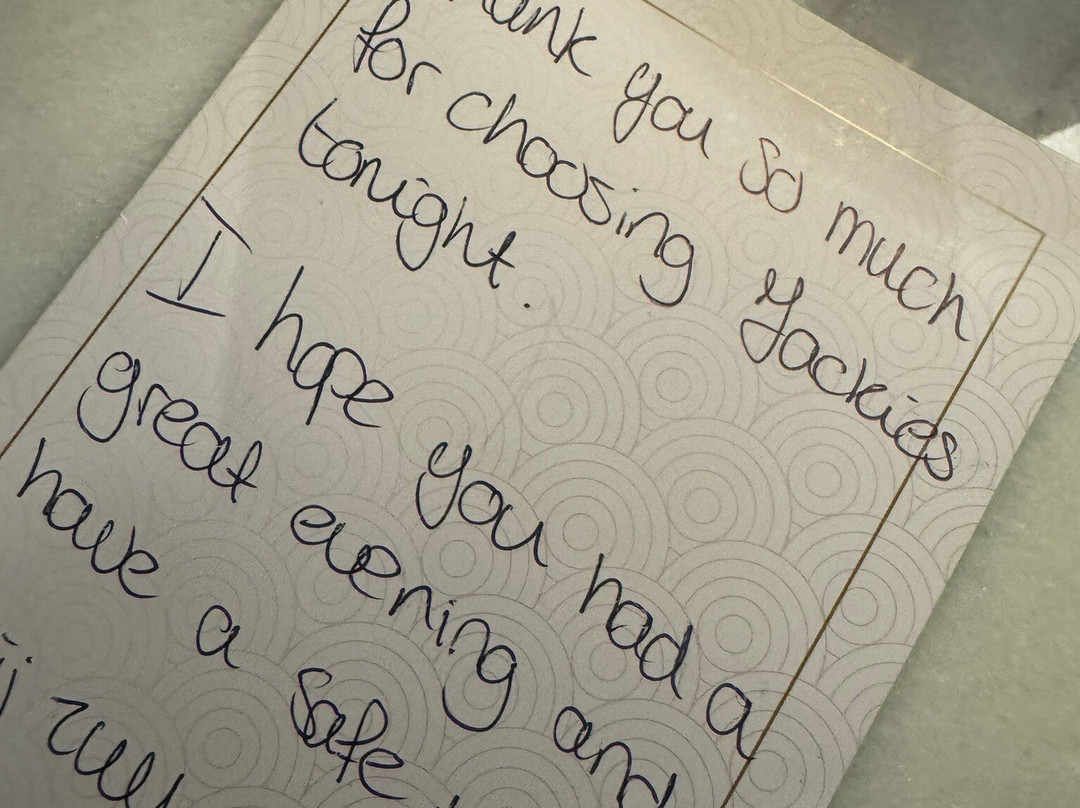 Thank you so much
for choosing Yackies
tonight.
I hope you had a
great evening and
have a safe